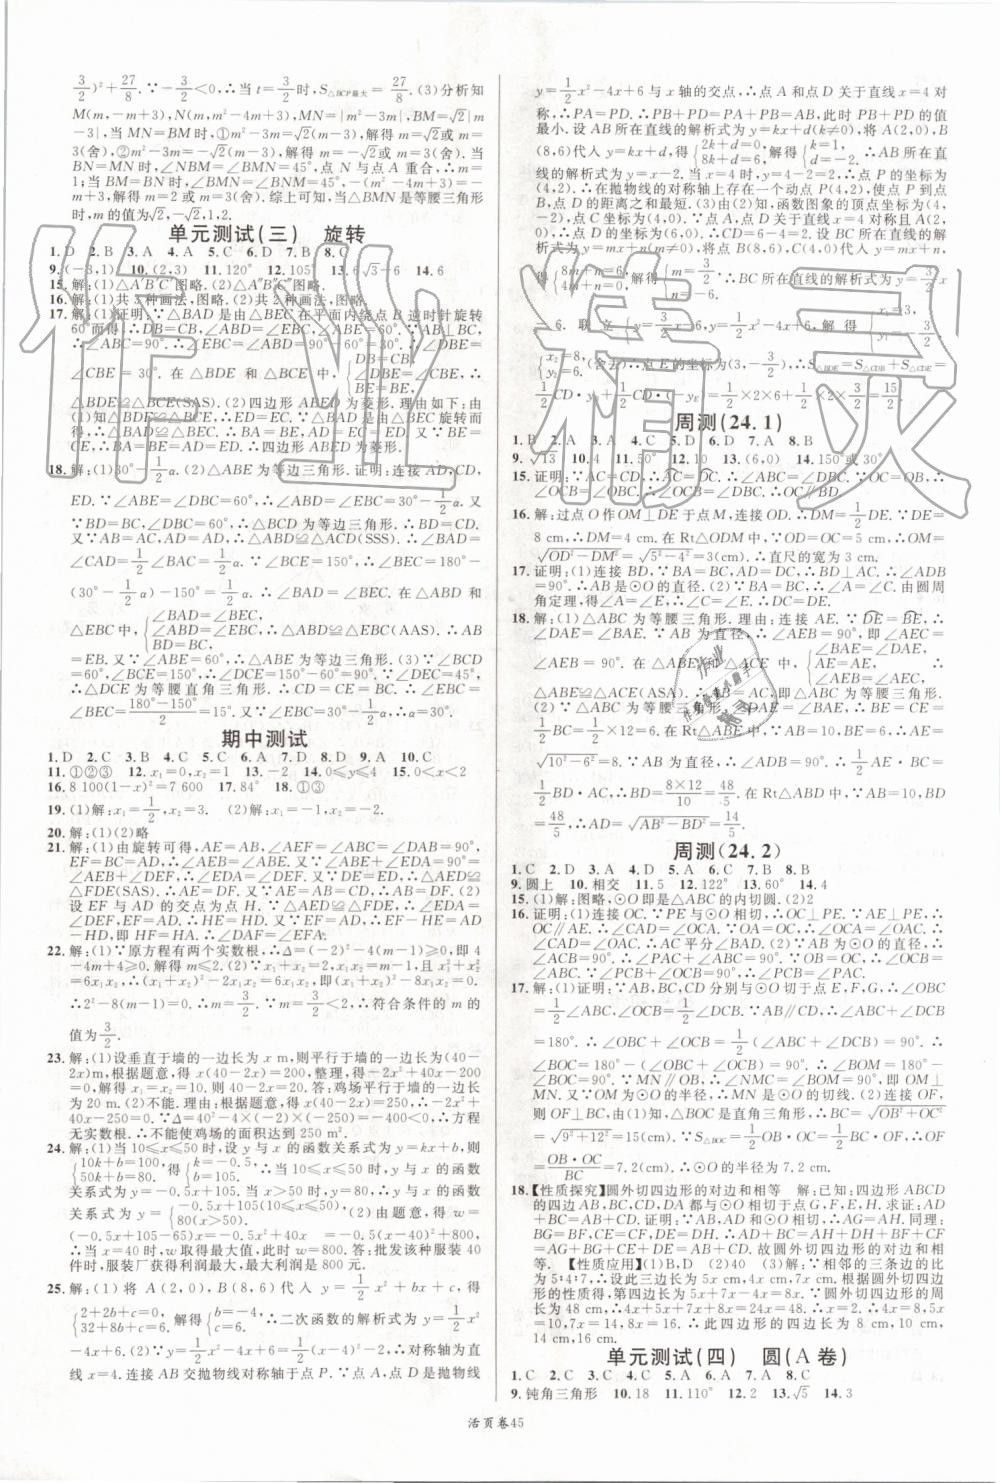 3/2)²+27/8.∵-3/2<0,∴当 t=3/2 时,S△BCP最大=27/8.(3)分析知
M(m,-m+3),N(m,m²-4m+3),MN=|m²-3m|,BM=√2|m
-3|,当 MN=BM 时,①m²-3m=√2(m-3),解得 m=√2或 m=
3(舍),②m²-3m=-√2(m-3),解得 m=-√2或 m=3(舍).当
BN=MN 时,∠NBM=∠BMN=45°,点 N 与点 A 重合,∴m=
1;当 BM=BN 时,∠BMN=∠BNM=45°,-(m²-4m+3)=
-m+3,解得 m=2或 m=3(舍).综上可知,当△BMN是等腰三角形
时,m的值为√2,-√2,1,2.
单元测试(三) 旋转
1.D 2.B 3.A 4.A 5.C 6.D 7.B 8.C
9.(-3,1) 10.(2,3) 11.120° 12.105° 13.6√3-6 14.6
15.解:(1)△A'B'C'图略.(2)△A″B″C″图略.
16.解:(1)共3种画法,图略.(2)共2种画法,图略.
17.解:(1)证明:∵△BAD是由△BEC在平面内绕点B逆时针旋转
60°而得,∴DB=CB,∠ABD=∠EBC,∠ABE=60°.∵AB⊥BC,
∴∠ABC=90°.∴∠DBE=∠CBE=30°.在△BDE和△BCE中,
{DB=CB,
∠DBE=∠CBE,
BE=BE,
∴△BDE≌△BCE(SAS).(2)四边形ABED为菱形.理由如下:由
(1)知△BDE≌△BCE,∴ED=EC.∵△BAD是由△BEC旋转而
得,∴△BAD≌△BEC.∴BA=BE,AD=EC=ED.又∵BE=
CE,∴BA=BE=AD=ED.∴四边形ABED为菱形.
18.解:(1)30°-1/2α.(2)△ABE为等边三角形.证明:连接AD,CD,
ED.∵∠ABE=∠DBC=60°,∴∠ABD=∠EBC=30°-1/2α.又
∵BD=BC,∠DBC=60°,∴△BCD为等边三角形.∴BD=CD.
又∵AB=AC,AD=AD,∴△ABD≌△ACD(SSS).∴∠BAD=
∠CAD=1/2∠BAC=1/2α.∵∠BCE=150°,∴∠BEC=180°-
(30°-1/2α)-150°=1/2α.∴∠BAD=∠BEC.在△ABD和
△EBC中,{∠BAD=∠BEC,
∠ABD=∠EBC,
BD=BC,
∴△ABD≌△EBC(AAS).∴AB
=EB.又∵∠ABE=60°,∴△ABE为等边三角形.(3)∵∠BCD
=60°,∠BCE=150°,∴∠DCE=150°-60°=90°.∵∠DEC=45°,
∴△DCE为等腰直角三角形.∴CD=CE=BC.∴∠EBC=
∠BEC=(180°-150°)/2=15°.又∵∠EBC=30°-1/2α=15°,∴α=30°.
期中测试
1.D 2.C 3.B 4.C 5.C 6.A 7.D 8.D 9.A 10.C
11.①②③ 12.x₁=0,x₂=1 13.-2 14.0≤y≤4 15.0<x<2
16.8 100(1-x)²=7 600 17.84° 18.①③
19.(1)解:x₁=1/2,x₂=3. (2)解:x₁=-1,x₂=2.
20.解:(1)(2)略
21.解:(1)由旋转可得,AE=AB,∠AEF=∠ABC=∠DAB=90°,
EF=BC=AD,∴∠AEB=∠ABE.又∵∠ABE+∠EDA=90°=
∠AEB+∠DEF,∴∠EDA=∠DEF.又∵DE=ED,∴△AED≌
△FDE(SAS).∴AE=DF.又∵AE=AB=CD,∴CD=DF.(2)
设EF与AD的交点为点H.∵△AED≌△FDE,∴∠AED=
∠FDE,AD=EF.∴HE=HD.又∵EF=AD,∴EF-HE=AD
-HD,即HF=HA.
22.解:(1)∵原方程有两个实数根,∴Δ=(-2)²-4(m-1)≥0,即4
-4m+4≥0.解得m≤2.(2)∵x₁+x₂=2,x₁x₂=m-1,且x₁²+x₂²
=6x₁x₂,∴(x₁+x₂)²-2x₁x₂=6x₁x₂,即(x₁+x₂)²-8x₁x₂=0.
∴2²-8(m-1)=0.∴m=3/2.∵m=3/2<2,∴符合条件的m的
值为3/2.
23.解:(1)设垂直于墙的一边长为x m,则平行于墙的一边长为(40-
2x)m,根据题意,得x(40-2x)=200,整理,得x²-20x+100=0,
解得x₁=x₂=10,则40-2x=40-20=20.答:鸡场平行于墙的一边长
为20 m.(2)不能.理由:根据题意,得x(40-2x)=250,∴-2x²+
40x-250=0.∵Δ=40²-4×(-2)×(-250)=-400<0,∴方程
无实数根.∴不能使鸡场的面积达到250 m².
24.解:(1)当10≤x≤50时,设y与x的函数关系式为y=kx+b,则
{10k+b=100,
50k+b=80.
得{k=-0.5,
b=105.
∴当10≤x≤50时,y与x的函数
关系式为y=-0.5x+105;当x>50时,y=80.∴y与x的函数
关系式为y={-0.5x+105(10≤x≤50),
80(x>50).
(2)由题意,得w=
(-0.5x+105-65)x=-0.5x²+40x=-0.5(x-40)²+800,
∴当x=40时,w取得最大值,此时w=800.答:批发该种服装40
件时,服装厂获得利润最大,最大利润是800元.
25.解:(1)将A(2,0),B(8,6)代入y=1/2x²+bx+c,得
{2+2b+c=0,
32+8b+c=6.
解得{b=-4,
c=6.
∴二次函数的解析式为y=1/2x²
-4x+6.(2)∵y=1/2x²-4x+6=1/2(x-4)²-2,∴抛物线的对称轴
为直线x=4.连接AB交抛物线的对称轴于点P,∵点A,点D是抛物线
y=1/2x²-4x+6与x轴的交点,∴点A和点D关于直线x=4对
称,∴PA=PD.∴PB+PD=PA+PB=AB,此时PB+PD的值
最小.设AB所在直线的解析式为y=kx+d,将A(2,0),B
(8,6)代入y=kx+d,得{2k+d=0,
8k+d=6.
解得{k=1,
d=-2.
∴AB所在直
线的解析式为y=x-2.当x=4时,y=4-2=2,∴点P的坐标为
(4,2).∴在抛物线的对称轴上存在一个动点P(4,2),使点P到点
B,点D的距离之和最短.(3)由(2)知,函数图象的顶点坐标为(4,
-2),点C坐标为(4,0).∵点D和点A关于直线x=4对称且A(2,
0),∴点D坐标为(6,0).∴CD=6-4=2.设BC所在直线的解析
式为y=mx+n(m≠0),将点B(8,6),C(4,0)代入y=mx+n,
得{8m+n=6,
4m+n=0.
解得{m=3/2,
n=-6.
∴BC所在直线的解析式为y=3/2x
-6.联立{y=3/2x-6,
y=1/2x²-4x+6,
解得{x₁=3,
y₁=-3/2,
{x₂=8,
y₂=6.
(舍去)∴点E的坐标为(3,-3/2).∴S△BDE=S△CDB+S△CDE
=1/2CD·y_B+1/2CD·|y_E|=1/2×2×6+1/2×2×3/2=15/2.
周测(24.1)
1.B 2.A 3.A 4.C 5.D 6.D 7.A 8.B
9.√13 10.4 11.50° 12.10 13.(6,0) 14.150°或30°
16.解:过点O作OM⊥DE于点M,连接OD.∴DM=1/2DE.∵DE=8
cm,∴DM=4 cm.在Rt△ODM中,∵OD=OC=5 cm,∴OM=
√(OD²-DM²)=√(5²-4²)=3 cm.∴直尺的宽为3 cm.
17.证明:(1)连接BD,∵BA=BC,AD=DC,∴BD⊥AC.∴∠ADB
=90°.∴AB是⊙O的直径.(2)∵BA=BC,∴∠A=∠C.由圆周
角定理,得∠A=∠E,∴∠C=∠E.∴DC=DE.
18.解:(1)△ABC为等腰三角形.理由:连接AE.∵DE=BE,∴
∠DAE=∠BAE.又∵AB为直径,∴∠AEB=90°,即∠AEC=
∠AEB=90°.在△AEB和△AEC中,{∠BAE=∠DAE,
AE=AE,
∠AEB=∠AEC,
∴△AEB≌△AEC(ASA).∴AB=AC.∴△ABC为等腰三角形.
周测(24.2)
1.C 2.D 3.A 4.C 5.D 6.A 7.B 8.B
9.圆上 10.相交 11.5 12.122° 13.60° 14.4
15.(1)解:图略,⊙O即是△ABC的内切圆.(2)2
16.证明:(1)连接OC.∵PE与⊙O相切,∴OC⊥PE.∵AE⊥PE,∴
OC∥AE.∴∠CAD=∠OCA.∵OA=OC,∴∠OCA=∠OAC.
∴∠CAD=∠OAC.∴AC平分∠BAD.(2)∵AB为⊙O的直径,
∴∠ACB=90°.∴∠PAC+∠ABC=90°.∵OB=OC,∴∠OCB=
∠OBC.∵∠PCB+∠OCB=90°,∴∠PCB=∠PAC.
17.解:(1)证明:∵AB,BC,CD分别与⊙O切于点E,F,G,∴∠OBC=
1/2∠ABC,∠OCB=1/2∠DCB.∵AB∥CD,∴∠ABC+∠DCB
=180°.∴∠OBC+∠OCB=1/2(∠ABC+∠DCB)=90°.∴
∠BOC=180°-(∠OBC+∠OCB)=90°.∴∠BOM=180°-
∠BOC=90°.∵MN∥OB,∴∠NMC=∠BOM=90°,即OM⊥
MN.又∵OM为⊙O的半径,∴MN是⊙O的切线.(2)连接OF,
则OF⊥BC.由(1)知,△BOC是直角三角形,∴BC=√(OB²+OC²)=
√(9²+12²)=15(cm).∵S△BOC=1/2OB·OC=1/2BC·OF,∴OF=
OB·OC/BC=7.2(cm).∴⊙O的半径为7.2 cm.
18.【性质探究】圆外切四边形的对边和相等 解:已知:四边形ABCD
的四边AB,BC,CD,DA都与⊙O相切于点G,F,E,H.求证:AD+
BC=AB+CD.证明:∵AB,AD和⊙O相切,∴AG=AH.同理:
BG=BF,CE=CF,DE=DH.∴AD+BC=AH+DH+BF+CF
=AG+BG+CE+DE=AB+CD.故圆外切四边形的对边和相
等.【性质应用】(1)B,D (2)40 (3)解:∵相邻的三条边的比
为5:4:7,∴设此三边长为5x cm,4x cm,7x cm.根据圆外切四边
形的性质得,第四边长为5x+7x-4x=8x.∵圆外切四边形的周长
为48 cm,∴4x+5x+7x+8x=24x=48.∴x=2.∴4x=8,5x
=10,7x=14,8x=16.∴此四边形的四边的长为8 cm,10 cm,
14 cm,16 cm.
单元测试(四) 圆(A卷)
1.C 2.C 3.A 4.C 5.B 6.D 7.A 8.C
9.钝角三角形 10.18 11.110° 12.2 13.√5 14.3
活页卷45